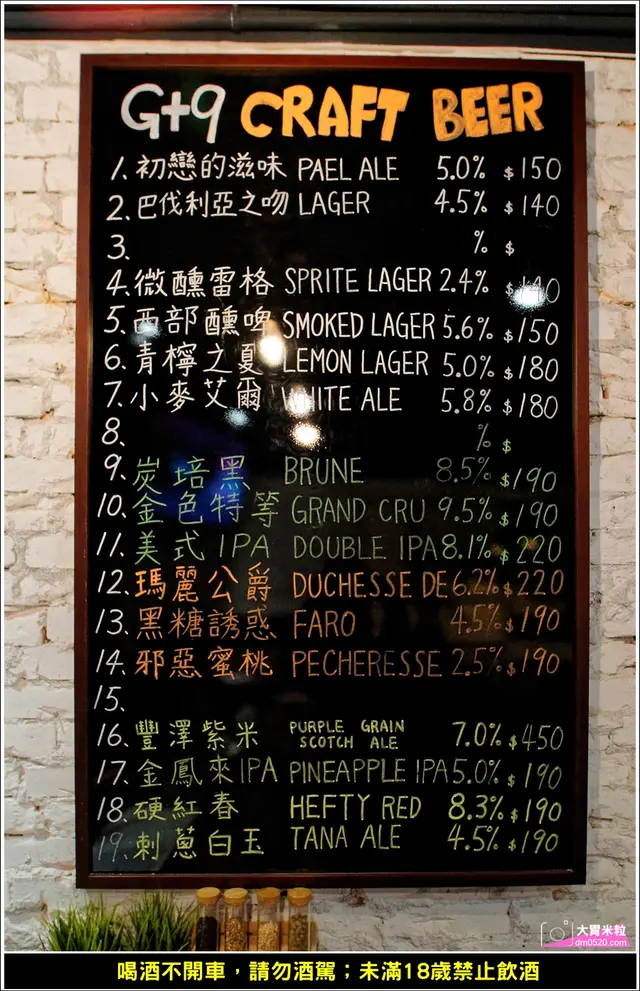 G+9 CRAFT BEER
1. 初戀的滋味 PAEL ALE 5.0% $150
2. 巴伐利亞之吻 LAGER 4.5% $140
3. % $
4. 微醺雷格 SPRITE LAGER 2.4% $140
5. 西部醺啤 SMOKED LAGER 5.6% $150
6. 青檸之夏 LEMON LAGER 5.0% $180
7. 小麥艾爾 WHITE ALE 5.8% $180
8. % $
9. 炭培黑 BRUNE 8.5% $190
10. 金色特等 GRAND CRU 9.5% $190
11. 美式IPA DOUBLE IPA 8.1% $220
12. 瑪麗公爵 DUCHESSE DE 6.2% $220
13. 黑糖誘惑 FARO 4.5% $190
14. 邪惡蜜桃 PECHERESSE 2.5% $190
15.
16. 豐澤紫米 PURPLE GRAIN SCOTCH ALE 7.0% $450
17. 金鳳來IPA PINEAPPLE IPA 5.0% $190
18. 硬紅春 HEFTY RED 8.3% $190
19. 刺蔥白玉 TANA ALE 4.5% $190
大胃米粒
dm0520.com
喝酒不開車，請勿酒駕；未滿18歲禁止飲酒